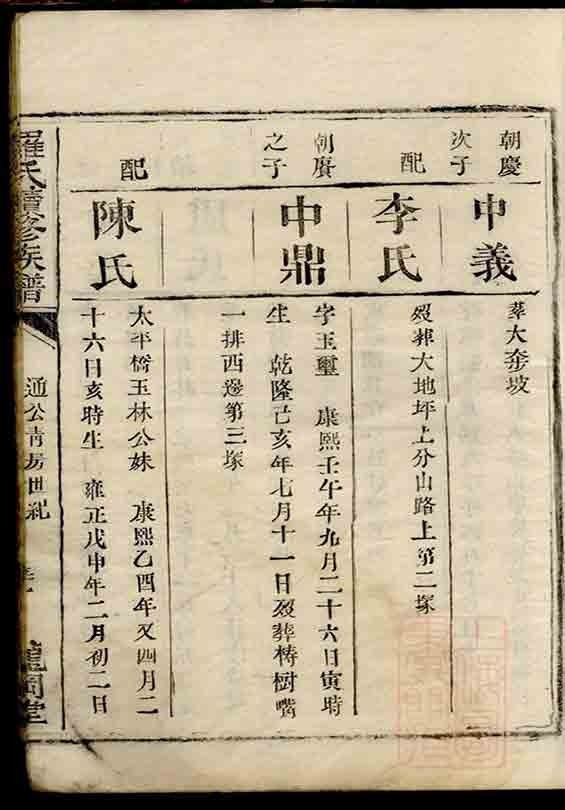 朝慶次子
中義
葬大莽坡
配
李氏
歿葬大地坪上分山路上第二塚
朝賡之子
中鼎
字玉璽 康熙壬午年九月二十六日寅時
生 乾隆己亥年七月十一日歿葬梼樹嘴
一排西邊第三塚
配
陳氏
太平橋玉林公妹 康熙乙酉年又四月二
十六日亥時生 雍正戊申年二月初二日
羅氏續修族譜
通公青房世紀
龍岡堂